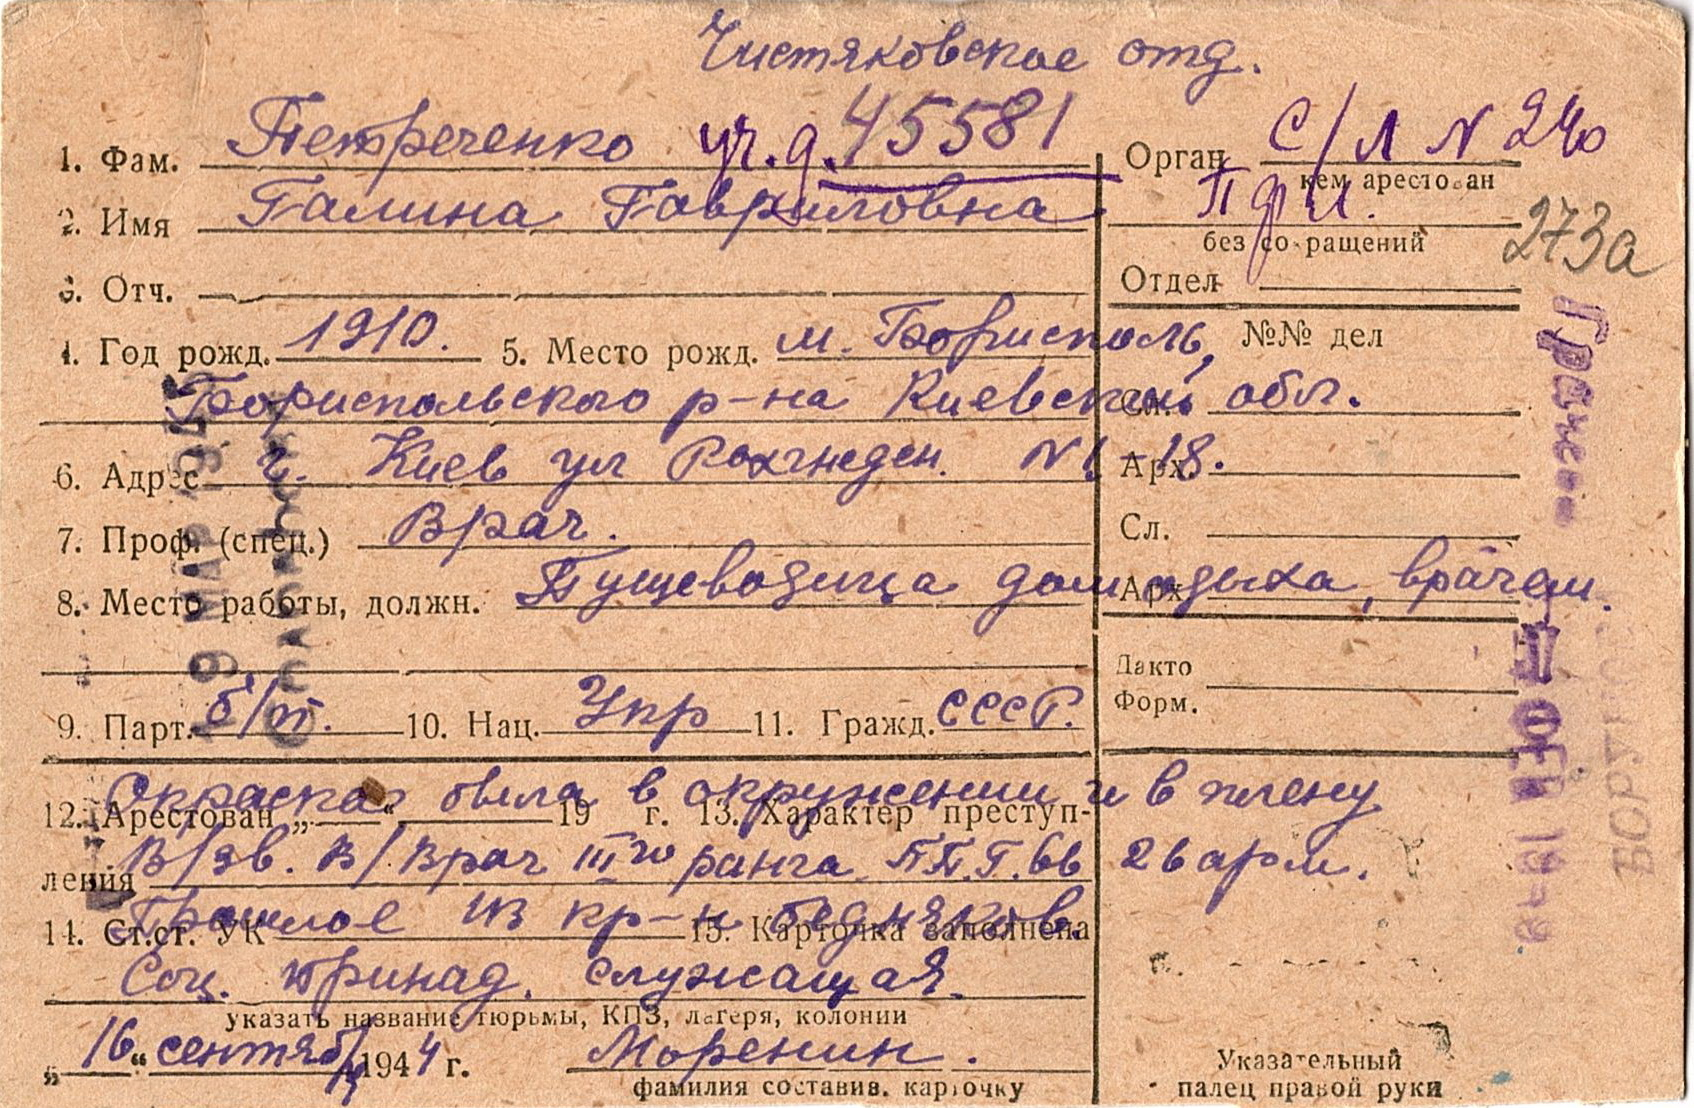 Чистяковское отд.
1. Фам. Петреченко уч.д. 45581
Орган С/Л N 240
кем арестован
ПФЛ.
2. Имя Галина Гавриловна
без сокращений
273а
3. Отч.
Отдел
4. Год рожд. 1910. 5. Место рожд. м. Борисполь,
№№ дел
Бориспольского р-на Киевской обл.
Сл.
6. Адрес г. Киев ул Рогнеден. N 1 - 18.
Арх.
7. Проф. (спец.) Врач.
Сл.
8. Место работы, должн. Пущеводица дом отдыха, врачем.
Арх.
Дакто
Форм.
9. Парт. б/п. 10. Нац. Укр 11. Гражд. СССР.
Окраска: была в окружении и в плену
12. Арестован „ “ 19 г. 13. Характер преступ-
В/зв. В/Врач III го ранга ППГ. 66 26 арм.
ления
Прошлое из кр-н бедняков.
14. Ст.ст. УК 15. Карточка заполнена
Соц. принад. служащая.
указать название тюрьмы, КПЗ, лагеря, колонии
„16“ сентября 1944 г. Моренин.
фамилия составив. карточку
Указательный
палец правой руки
9 МАР 1945